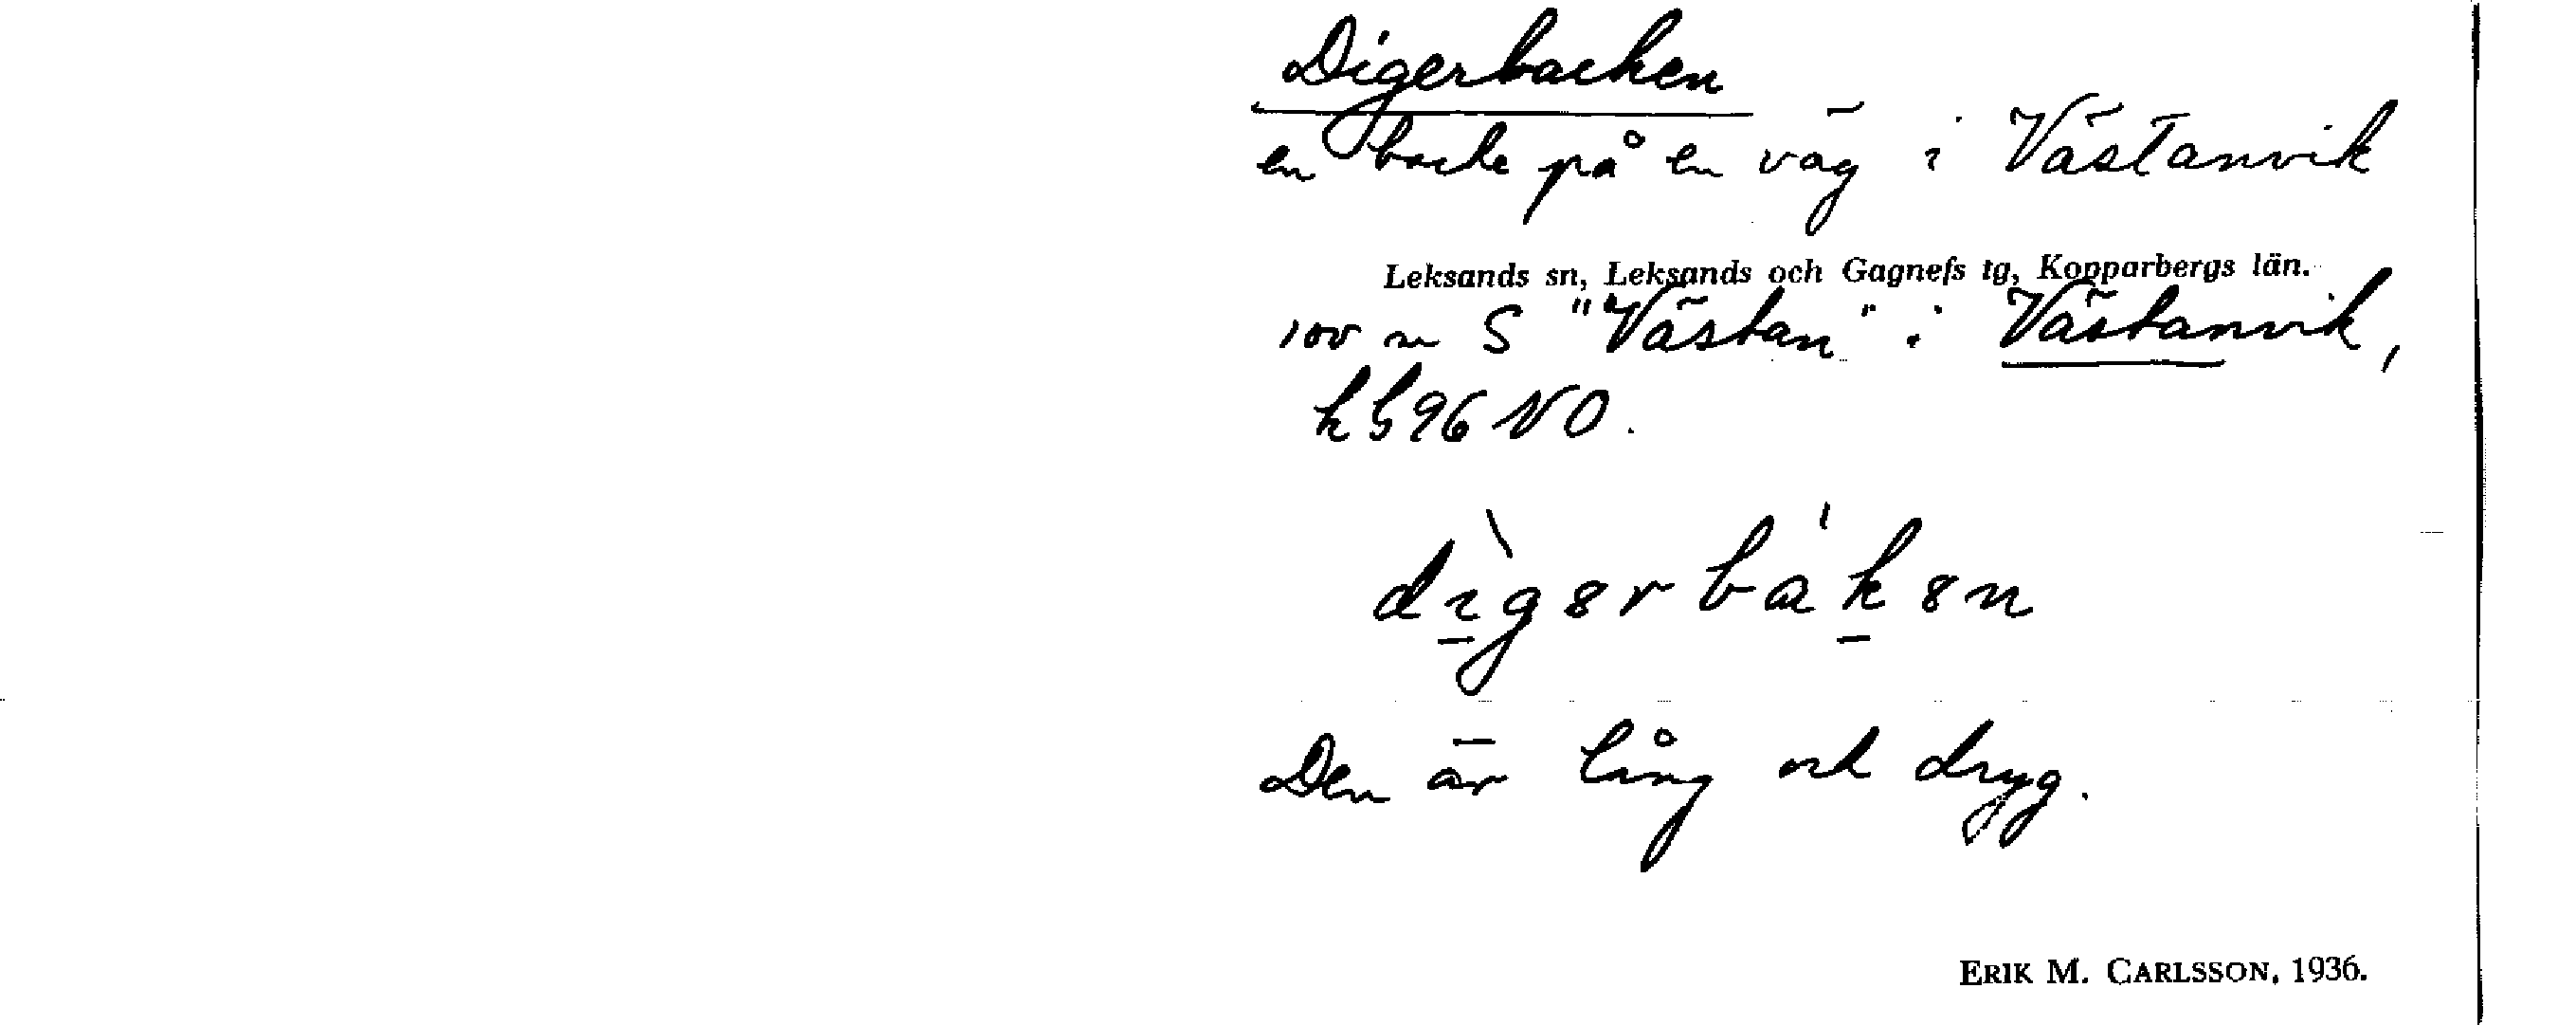 Digerbacken
en backe på en väg i Västanvik
Leksands sn, Leksands och Gagnefs tg, Kopparbergs län.
100 m S "Västan" i Västanvik,
kb 96 NO.
dìgərbákən
Den är lång och dryg.
ERIK M. CARLSSON, 1936.